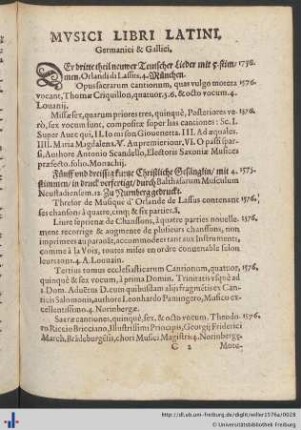 MVSICI LIBRI LATINI,
Germanici & Gallici,
DEr dritte theil newer Teutscher Lieder mit 5. stim-
men, Orlandi di Lassus, 4. München.
Opus sacrarum cantionum, quas vulgo moteta 1576.
vocant, Thomæ Criquillon, quatuor, 5. 6. & octo vocum. 4.
Louanij.
Missæ sex, quarum priores tres, quinque, Posteriores ve 1576.
rò, sex vocum sunt, compositæ super has cantiones: Sc. I.
Super Auec qui, II. Io mi son Giouenetta. III. Ad æquales.
IIII. Maria Magdalena. V. Au premier iour, VI. O passi spar-
si, Authore Antonio Scandello, Electoris Saxoniæ Musices
præfecto. folio. Monachij.
Fünff vnd dreissig kurtze Christliche Gesänglin/ mit 4. 1573.
stimmen/ in druck verfertigt/ durch Balthasarum Musculum
Neustadianum. 12. Zu Nurnberg getruckt.
Thresor de Musique d' Orlande de Lassus contenant 1576,
ses chansons à quatre, cinq, & six parties. 8.
Liure septieme de Chansons, à quatre parties nouelle- 1576.
ment recorrige & augmente de plusieurs chansons, non
imprimees au parauāt, accommodees tant aux Instruments
comme à la Voix, toutes mises en ordre conuenable selon
leurs tons. 4. A Louain.
Tertius tomus ecclesiasticarum Cantionum, quatuor, 1576,
quinque & sex vocum, à prima Domin. Trinitatis vsq; ad
1. Dom. Aduētus D. cum quibusdam alijs fragmētis ex Can-
ticis Salomonis, authore Leonhardo Pamingero, Musico ex-
cellentissimo. 4. Norinbergæ.
Sacræ cantiones, quinque, sex, & octo vocum. Theodo- 1576,
ro Riccio Bricciano, Illustrissimi Principis, Georgij Friderici
March. Brādeburgēsis, chori Musici Magistri. 4. Norimbergę.
C 2 Mote-
http://dl.ub.uni-freiburg.de/diglit/willer1576a/0028
© Universitätsbibliothek Freiburg